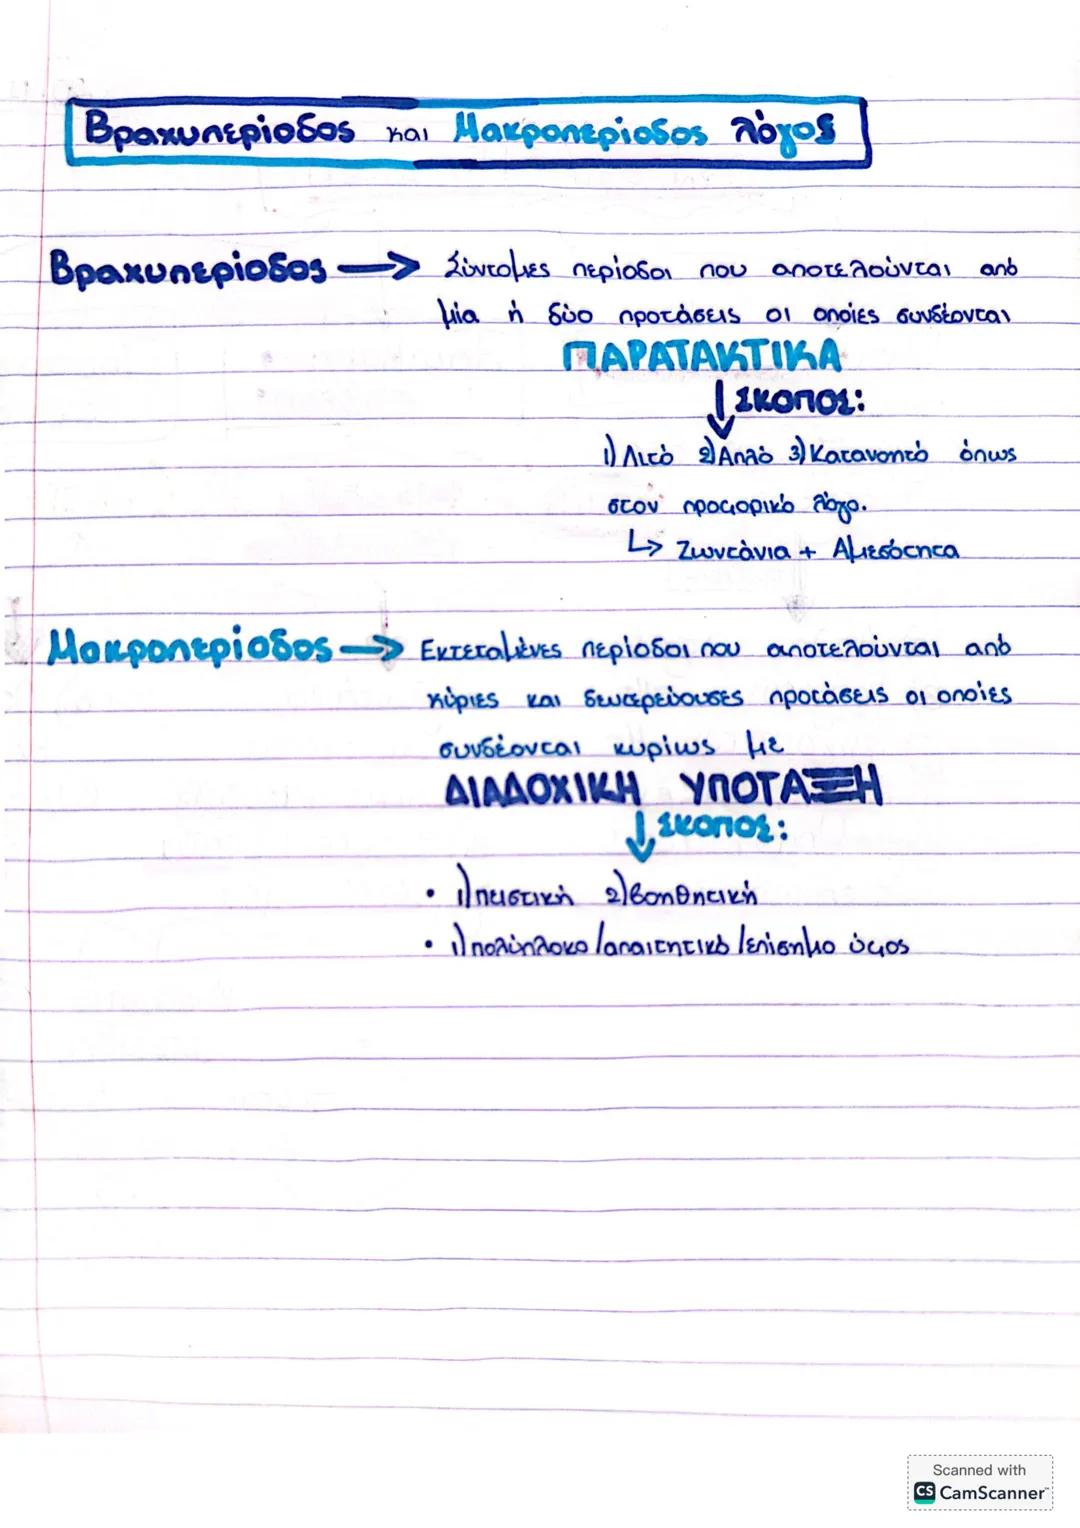 Βραχυπερίοδος και Μακροπερίοδος λόγος
Βραχυπερίοδος → Σύντομες περίοδοι που αποτελούνται από
μία ή δύο προτάσεις οι οποίες συνδέονται
ΠΑΡΑΤΑΚΤΙΚΑ
↓ ΣΚΟΠΟΣ:
1) Λιτό 2) Απλό 3) Κατανοητό όπως
στον προφορικό λόγο.
↳ Ζωντάνια + Αμεσότητα
Μακροπερίοδος → Εκτεταμένες περίοδοι που αποτελούνται από
κύριες και δευτερεύουσες προτάσεις οι οποίες
συνδέονται κυρίως με
ΔΙΑΔΟΧΙΚΗ ΥΠΟΤΑΞΗ
↓ ΣΚΟΠΟΣ:
• 1) πειστική 2) βοηθητική
• 1) πολύπλοκο /απαιτητικό /επίσημο ύφος
Scanned with
CS CamScanner